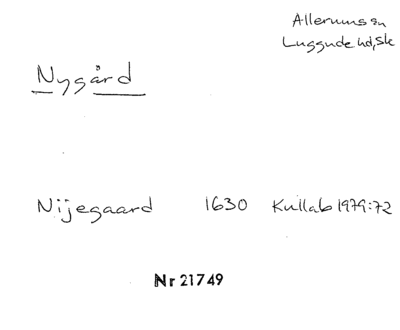 Allerums sn
Luggude hd, Sk
Nygård
Nijegaard 1630 Kullab 1979:72
Nr 21749